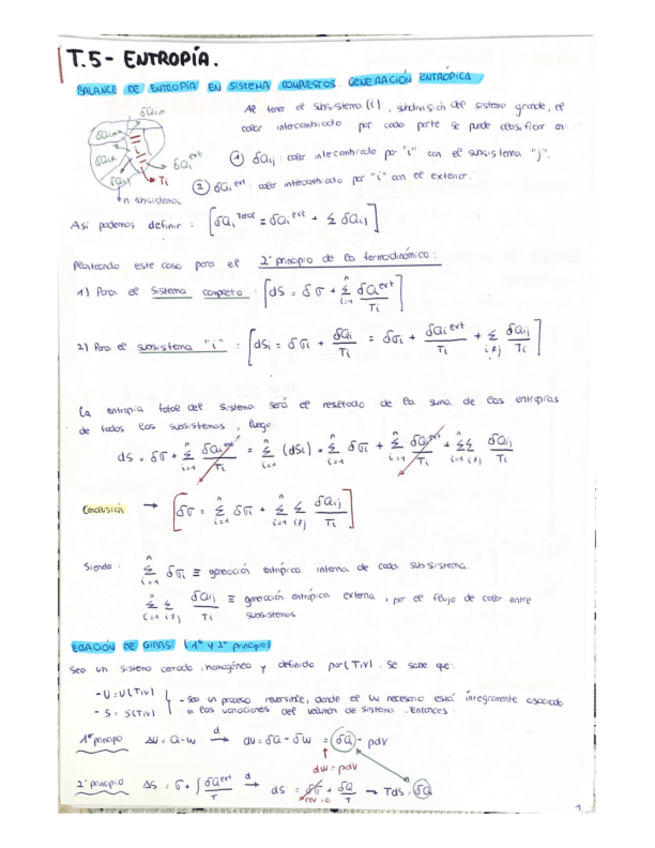 T.5- ENTROPÍA.
BALANCE DE ENTROPÍA EN SISTEMA COMPUESTOS. GENERACIÓN ENTRÓPICA
Al tener el subsistema (i), subdivisión del sistema grande, el
calor intercambiado por cada parte se puede clasificar en:
① δQij: calor intercambiado por "i" con el subsistema "j".
② δQi^ext: calor intercambiado por "i" con el exterior.
δQi^ext
Ti
n subsistemas
Así podemos definir: [δQi^Total = δQi^ext + Σ δQij]
Planteando este caso para el 2º principio de la termodinámica:
1) Para el sistema completo: [dS = δσ + Σ_{i=1}^{n} δQi^ext / Ti]
2) Para el subsistema "i": [dSi = δσi + δQi/Ti = δσi + δQi^ext/Ti + Σ_{i≠j} δQij/Ti]
La entropía total del sistema será el resultado de la suma de las entropías
de todos los subsistemas, luego:
dS = δσ + Σ_{i=1}^{n} δQi^ext/Ti = Σ_{i=1}^{n} (dSi) = Σ_{i=1}^{n} δσi + Σ_{i=1}^{n} δQi^ext/Ti + Σ_{i=1}^{n} Σ_{i≠j} δQij/Ti
Conclusión → [δσ = Σ_{i=1}^{n} δσi + Σ_{i=1}^{n} Σ_{i≠j} δQij/Ti]
Siendo: Σ_{i=1}^{n} δσi ≡ generación entrópica interna de cada subsistema.
Σ_{i=1}^{n} Σ_{i≠j} δQij/Ti ≡ generación entrópica externa, por el flujo de calor entre
subsistemas.
ECUACIÓN DE GIBBS (1º y 2º principio)
Sea un sistema cerrado, homogéneo y definido por (T,V). Se sabe que:
- U=U(T,V)
- S= S(T,V)
- sea un proceso reversible, donde el W necesario está íntegramente asociado
a las variaciones del volumen de sistema. Entonces:
1er principio ΔU = Q-W →^d dU = δQ - δW = δQ - pdV
dW = pdV
2º principio ΔS = σ + ∫ δQ^ext/T →^d dS = δσ + δQ/T → TdS = δQ
rev=0
1